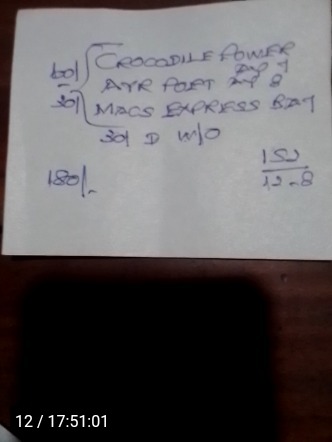 60/ CROCODILE POWER
AYR PORT AP 8
30/ MACS EXPRESS BAY
30/ D W/O
180/-
152
12-8
12 / 17:51:01